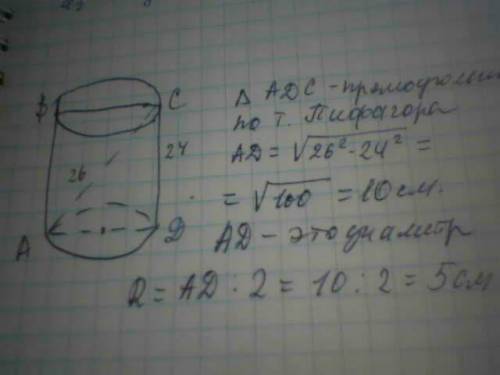 B
C
26
24
A
D
Δ ADC - прямоугольн
по т. Пифагора
AD = √26² - 24² =
= √100 = 10 см.
AD - это диаметр
R = AD : 2 = 10 : 2 = 5 см